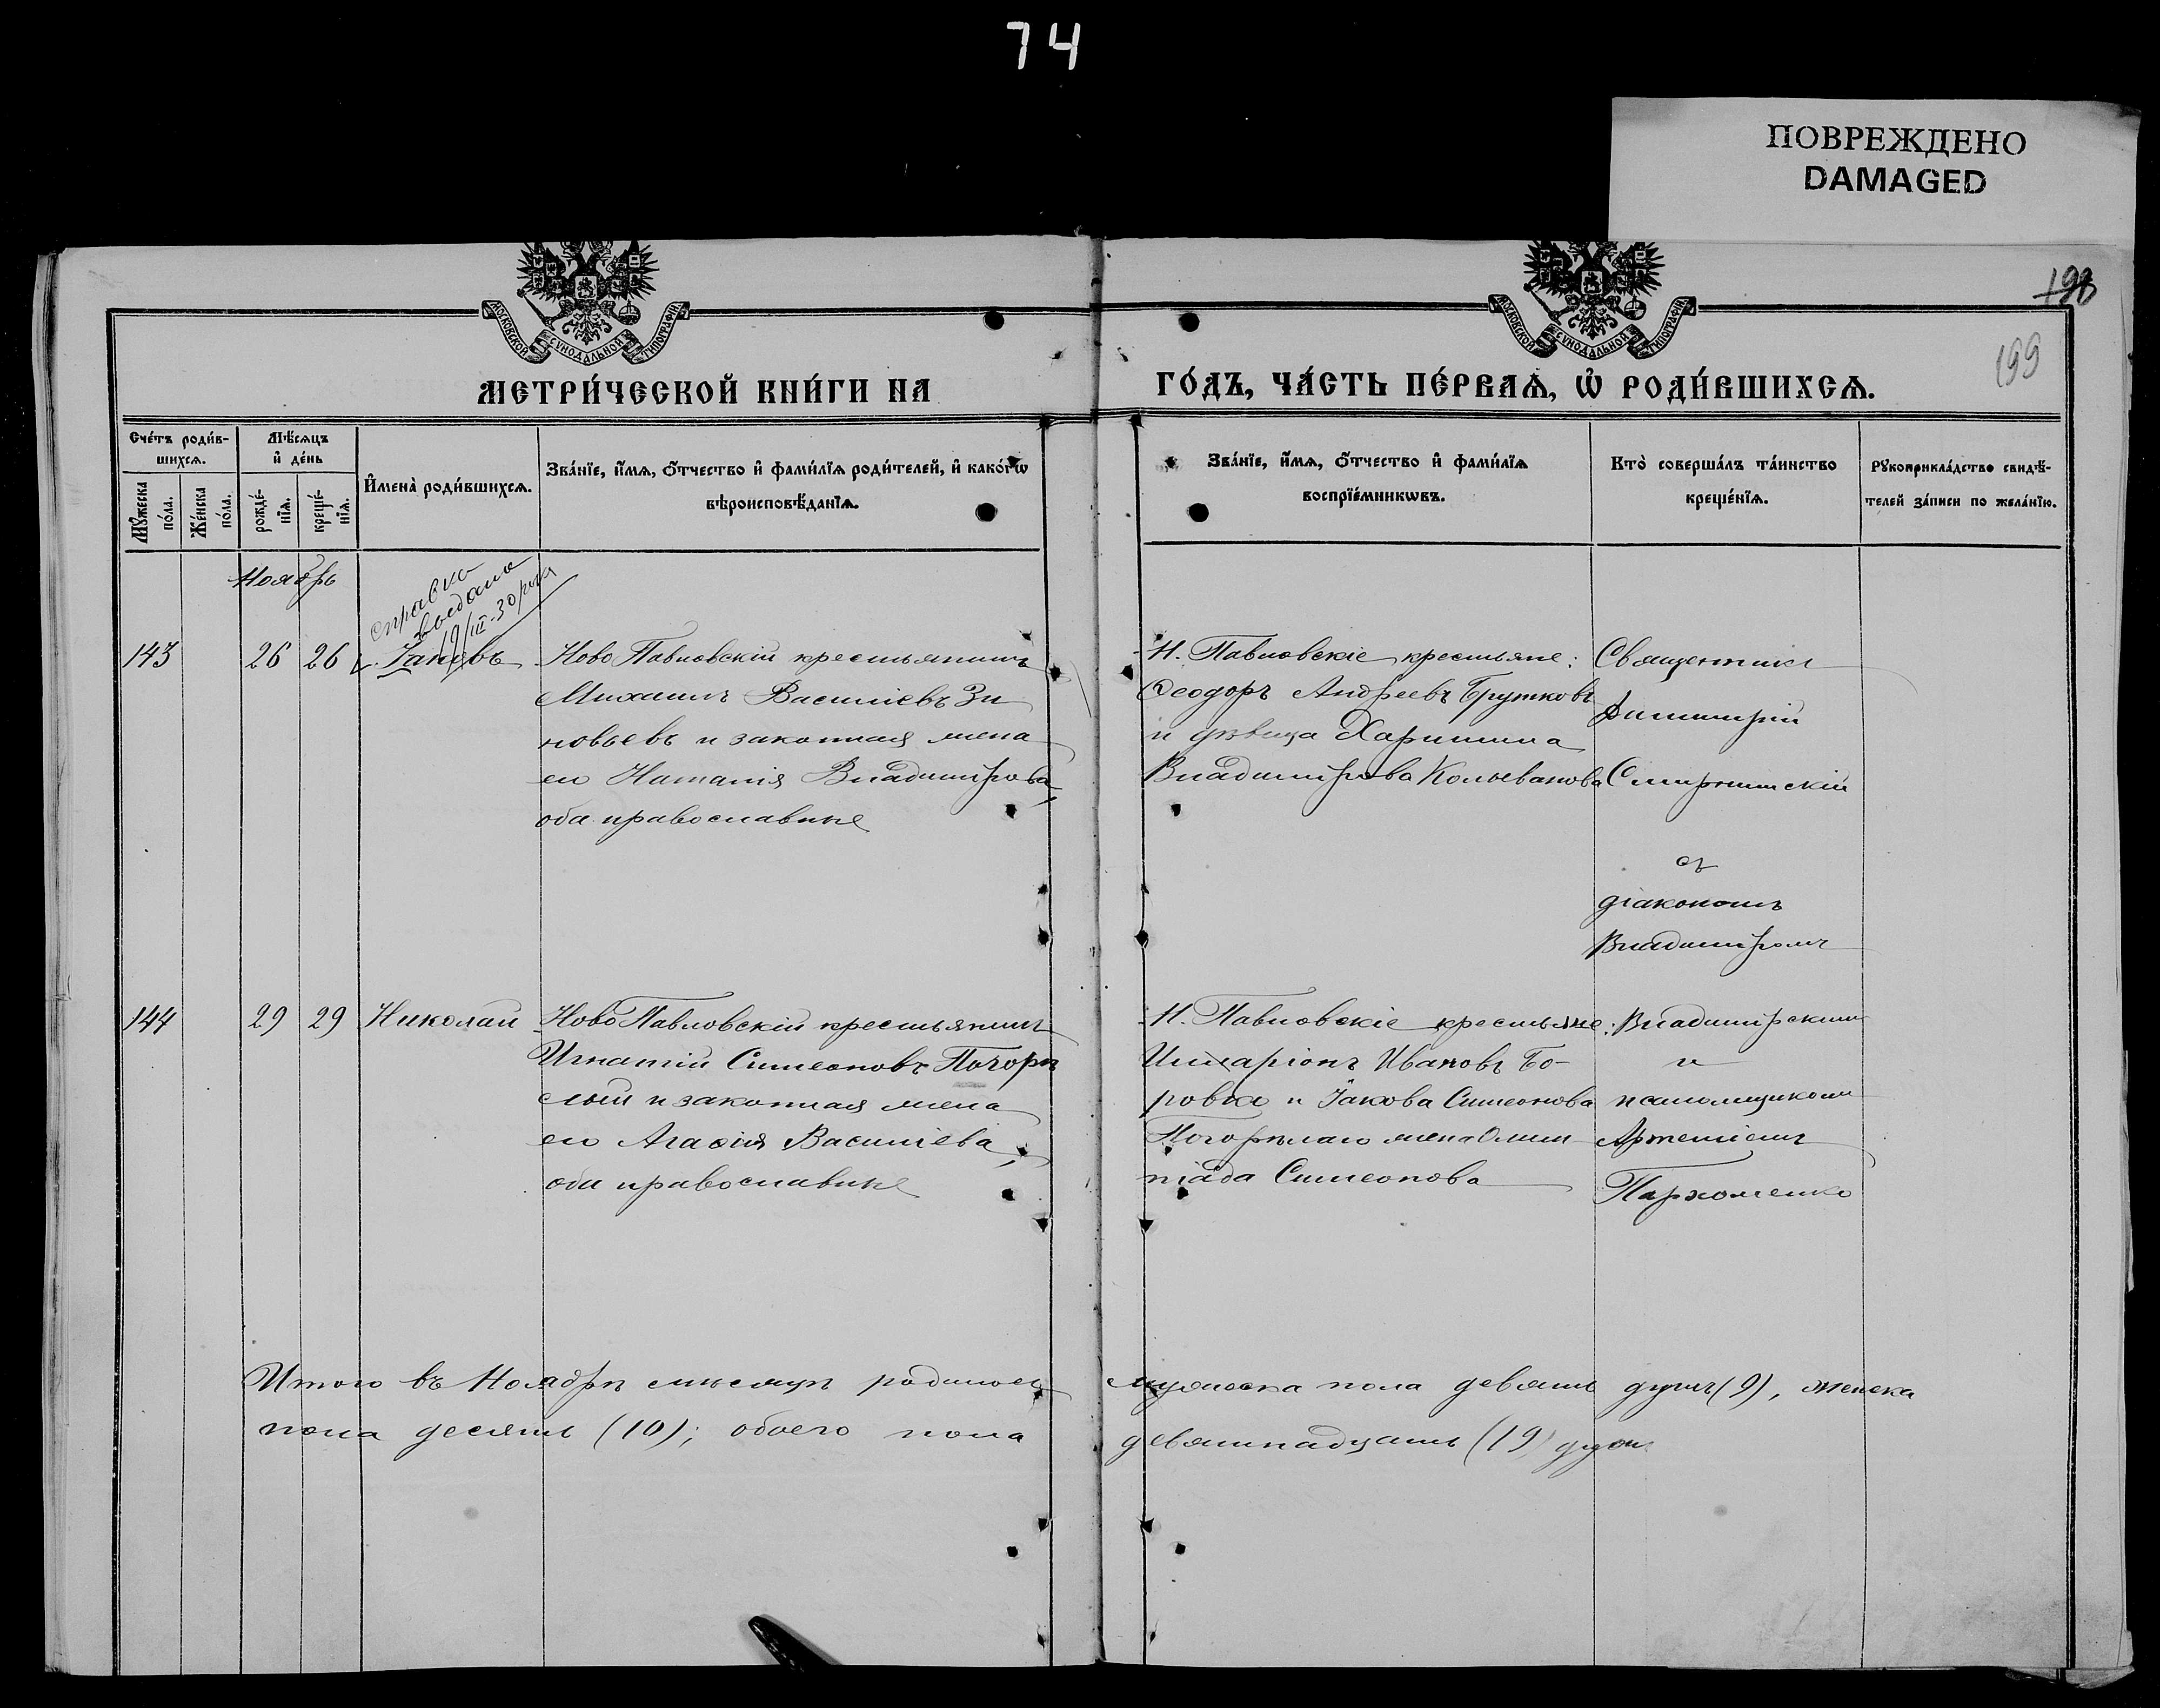 74
ПОВРЕЖДЕНО
DAMAGED
МОСКОВСКОЙ СѴНОДАЛЬНОЙ ТИПОГРАФІИ
МОСКОВСКОЙ СѴНОДАЛЬНОЙ ТИПОГРАФІИ
198
199
МЕТРИ́ЧЕСКОЙ КНИ́ГИ НА
ГО́ДЪ, ЧА́СТЬ ПЕ́РВАѦ, Ѡ҆ РОДИ́ВШИХСѦ.
Сче́тъ роди́в-
шихсѧ.
Мꙋ́жеска
по́ла.
Же́нска
по́ла.
Мѣ́сѧцъ
и҆ де́нь
рожде́-
нїѧ.
креще́-
нїѧ.
И҆мена̀ роди́вшихсѧ.
Зва́нїе, и҆́мѧ, ѻ҆́тчество и҆ фами́лїѧ роди́телей, и҆ како́гѡ
вѣроисповѣ́данїѧ.
Зва́нїе, и҆́мѧ, ѻ҆́тчество и҆ фами́лїѧ
воспрїе́мникѡвъ.
Кто̀ соверша́лъ та́инство
креще́нїѧ.
Рꙋкоприкла́дство свидѣ́-
телей за́писи по жела́нїю.
Ноябрь
справка
выдана
19/III-30
143 26 26 Іаковъ
Ново Павловскій крестьянинъ
Михаилъ Василіевъ Зи
новьевъ и законная жена
его Наталія Владимірова,
оба православные
Н. Павловскіе крестьяне:
Ѳеодоръ Андреевъ Брутковъ
и дѣвица Харитина
Владимірова Колыванова
Священникъ
Димитрій
Смирнитскій
съ
діакономъ
Владиміромъ
144 29 29 Николай
Ново Павловскій крестьянинъ
Игнатій Симеоновъ Погорѣ
лый и законная жена
его Агаѳія Василіева,
оба православные
Н. Павловскіе крестьяне:
Иларіонъ Ивановъ Бо-
ровка и Іакова Симеонова
Погорѣлаго жена Олим
піада Симеонова
Владимірскимъ
и
псаломщикомъ
Артеміемъ
Пархоменко
Итого въ Ноябрѣ мѣсяцѣ родилось мужеска пола девять душъ (9), женска
пола десять (10); обоего пола девятнадцать (19) душъ.